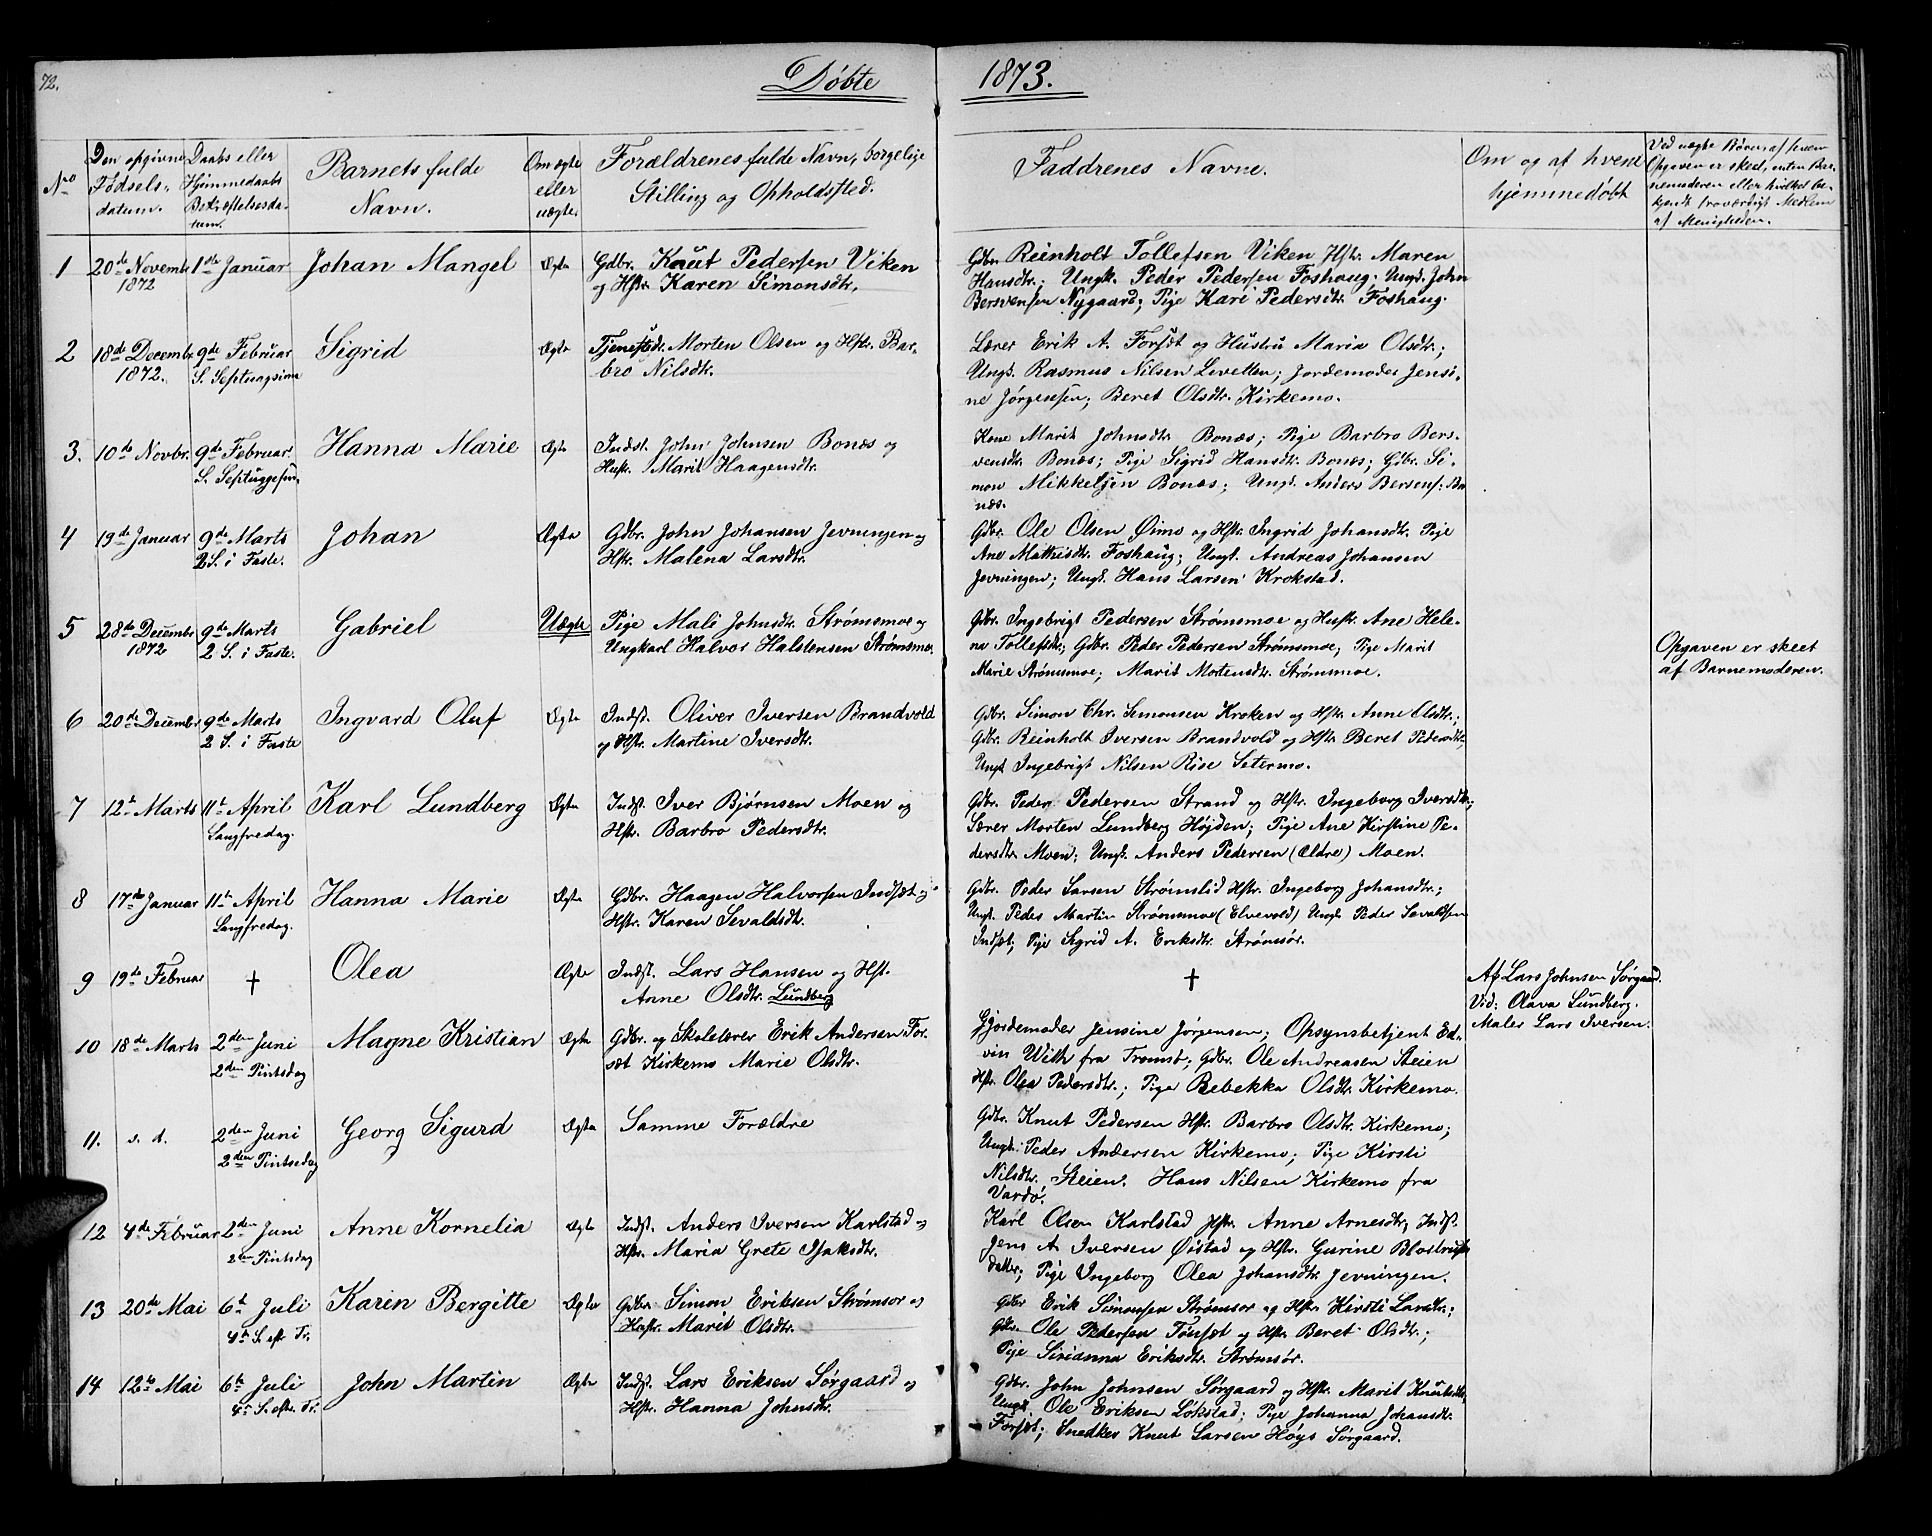 72.
Døbte 1873.
No
Den opgivne Fødsels-datum.
Daabs eller Hjemmedaabs Bekræftelsesdatum.
Barnets fulde Navn.
Om ægte eller uægte.
Forældrenes fulde Navn, borgelige Stilling og Opholdssted.
Faddrenes Navne.
Om og af hvem hjemmedøbt
Ved uægte Børn: af hvem Opgaven er sked, enten Barnemoderen eller hvilket bekjendt troværdigt Medlem af Menigheden.
1 20de Novembr 1872 1ste Januar Johan Mangel Ægte
Gdbr. Knut Pedersen Viken
og Hstr. Karen Simonsdtr.
Gdbr. Reinholt Tollefsen Viken Hstr. Maren
Hansdtr.; Ungk. Peder Pedersen Foshaug; Ungk. John
Bersvensen Nygaard; Pige Kari Pedersdtr. Foshaug.
2 18de Decembr. 1872. 9de Februar S. Septuagsima Sigrid Ægte
Tjenestdr. Morten Olsen og Hstr. Bar-
bro Nilsdtr.
Lærer Erik A. Forsæt og Hustru Maria Olsdtr.;
Ungk. Rasmus Nilsen Levetten; Jordemoder Jensi-
ne Jørgensen; Beret Olsdtr. Kirkemo.
3. 10de Novbr. 9de Februar. S. Septuggesim. Hanna Marie Ægte
Indst. John Johnsen Bonæs og
Hustr. Marit Haagensdtr.
Kone Marit Johnsdtr. Bonæs; Pige Barbro Bers-
vensdtr. Bonæs; Pige Sigrid Hansdtr. Bonæs; Gdbr. Si-
mon Mikkelsen Bonæs; Ungk. Anders Bersens: Bo
næs.
4 19de Januar 9de Marts 2 S. i Faste. Johan Ægte
Gdbr. John Johansen Jevningen og
Hstr. Malena Larsdtr.
Gdbr. Ole Olsen Øimo og Hstr. Ingrid Johansdtr. Pige
Ane Mathisdtr. Foshaug; Ungk. Andreas Johansen
Jevningen; Ungk. Hans Larsen Krokstad.
5 28de Decembr 1872 9de Marts 2 S. i Faste. Gabriel Uægte
Pige Mali Johnsdtr. Strømsmoe og
Ungkarl Halvor Halstensen Strømsmo.
Gdbr. Ingebrigt Pedersen Strømsmoe og Hustr. Ane Hele-
na Tollefsdtr; Gdbr. Peder Pedersen Strømsmoe; Pige Marit
Marie Strømsmoe; Marit Mortensdtr. Strømsmoe.
Opgaven er skeet
af Barnemoderen.
6 20de Decembr 9de Marts 2 S. i Faste Ingvard Oluf Ægte
Indst. Oliver Iversen Brandvold
og Hstr. Martine Iversdtr.
Gdbr. Simon Chr. Simonsen Kroken og Hstr. Anne Olsdtr.;
Gdbr. Reinholt Iversen Brandvold og Hstr Beret Pedersdtr,
Ungk Ingebrigt Nilsen Rise Setermo.
7 12te Marts 11te April Langfredag. Karl Lundberg Ægte
Indst. Iver Bjørnsen Moen og
Hstr. Barbro Pedersdtr.
Gdbr. Peder Pedersen Strand og Hstr. Ingeborg Iversdtr;
Lærer Morten Lundberg Højden; Pige Ane Kirstine Pe-
dersdtr. Moen; Ungk. Anders Pedersen (Ældre) Moen.
8 17de Januar 11te April Langfredag. Hanna Marie Ægte
Gdbr. Haagen Halvorsen Indset og
Hstr. Karen Sevaldsdtr.
Gdbr. Peder Larsen Strømslid Hstr. Ingeborg Johansdtr.;
Ungk. Peder Martin Strømsmoe (Elvevold) Ungk Peder Sevaldsen
Indsæt; Pige Sigrid A. Eriksdtr. Strømsør.
9 19de Februar † Olea Ægte
Indst. Lars Hansen og Hst.
Anne Olsdtr. Lundberg
†
Af Lars Johnsen Sørgaard.
Vid: Olava Lundberg.
Maler Lars Iversen.
10 18de Marts 2den Juni 2den Pintsdag Magne Kristian Ægte
Gdbr. og Skolelærer Erik Andersen For-
sæt Kirkemo Marie Olsdtr.
Gjordemoder Jensine Jørgensen; Opsynsbetjent Ed-
vin With fra Tromsø; Gdbr. Ole Andreasen Steien
Hstr. Olea Pedersdtr.; Pige Rebekka Olsdtr. Kirkemo.
11. s. d. 2den Juni 2den Pintsedag Georg Sigurd Ægte
Samme Forældre
Gdbr. Knut Pedersen Hstr. Barbro Olsdtr. Kirkemo;
Ungk. Peder Andersen Kirkemo; Pige Kirsti
Nilsdtr. Steien. Hans Nilsen Kirkemo fra
Vardø.
12 4de Februar 2den Juni 2den Pintsdag Anne Kornelia Ægte
Indst. Anders Iversen Karlstad og
Hstr. Maria Grete Isaksdtr.
Karl Olsen Karlstad Hstr. Anne Arnesdtr, Indst.
Jens A. Iversen Øistad og Hstr. Gurine
datter; Pige Ingeborg Olea Johansdtr Jevningen.
13 20de Mai 6te Juli 4de S. eft. Tr. Karen Bergitte Ægte
Gdbr. Simon Eriksen Strømsør og
Hustr. Marit Olsdtr.
Gdbr Erik Simonsen Strømsør og Hstr. Kirsti Larsdtr.;
Gdbr. Ole Pedersen Tønsæt og Hstr. Beret Olsdtr.;
Pige Sirianna Eriksdtr. Strømsør.
14 12te Mai 6te Juli 4de S. eftr. Tr. John Martin Ægte
Indst. Lars Eriksen Sørgaard og
Hstr. Hanna Johnsdtr.
Gdbr. John Johnsen Sørgaard og Hstr. Marit Knutsdtr,
Ungk. Ole Eriksen Løkstad; Pige Johanna Johansdtr.
Forsæt; Snedker Knut Larsen Høys Sørgaard.